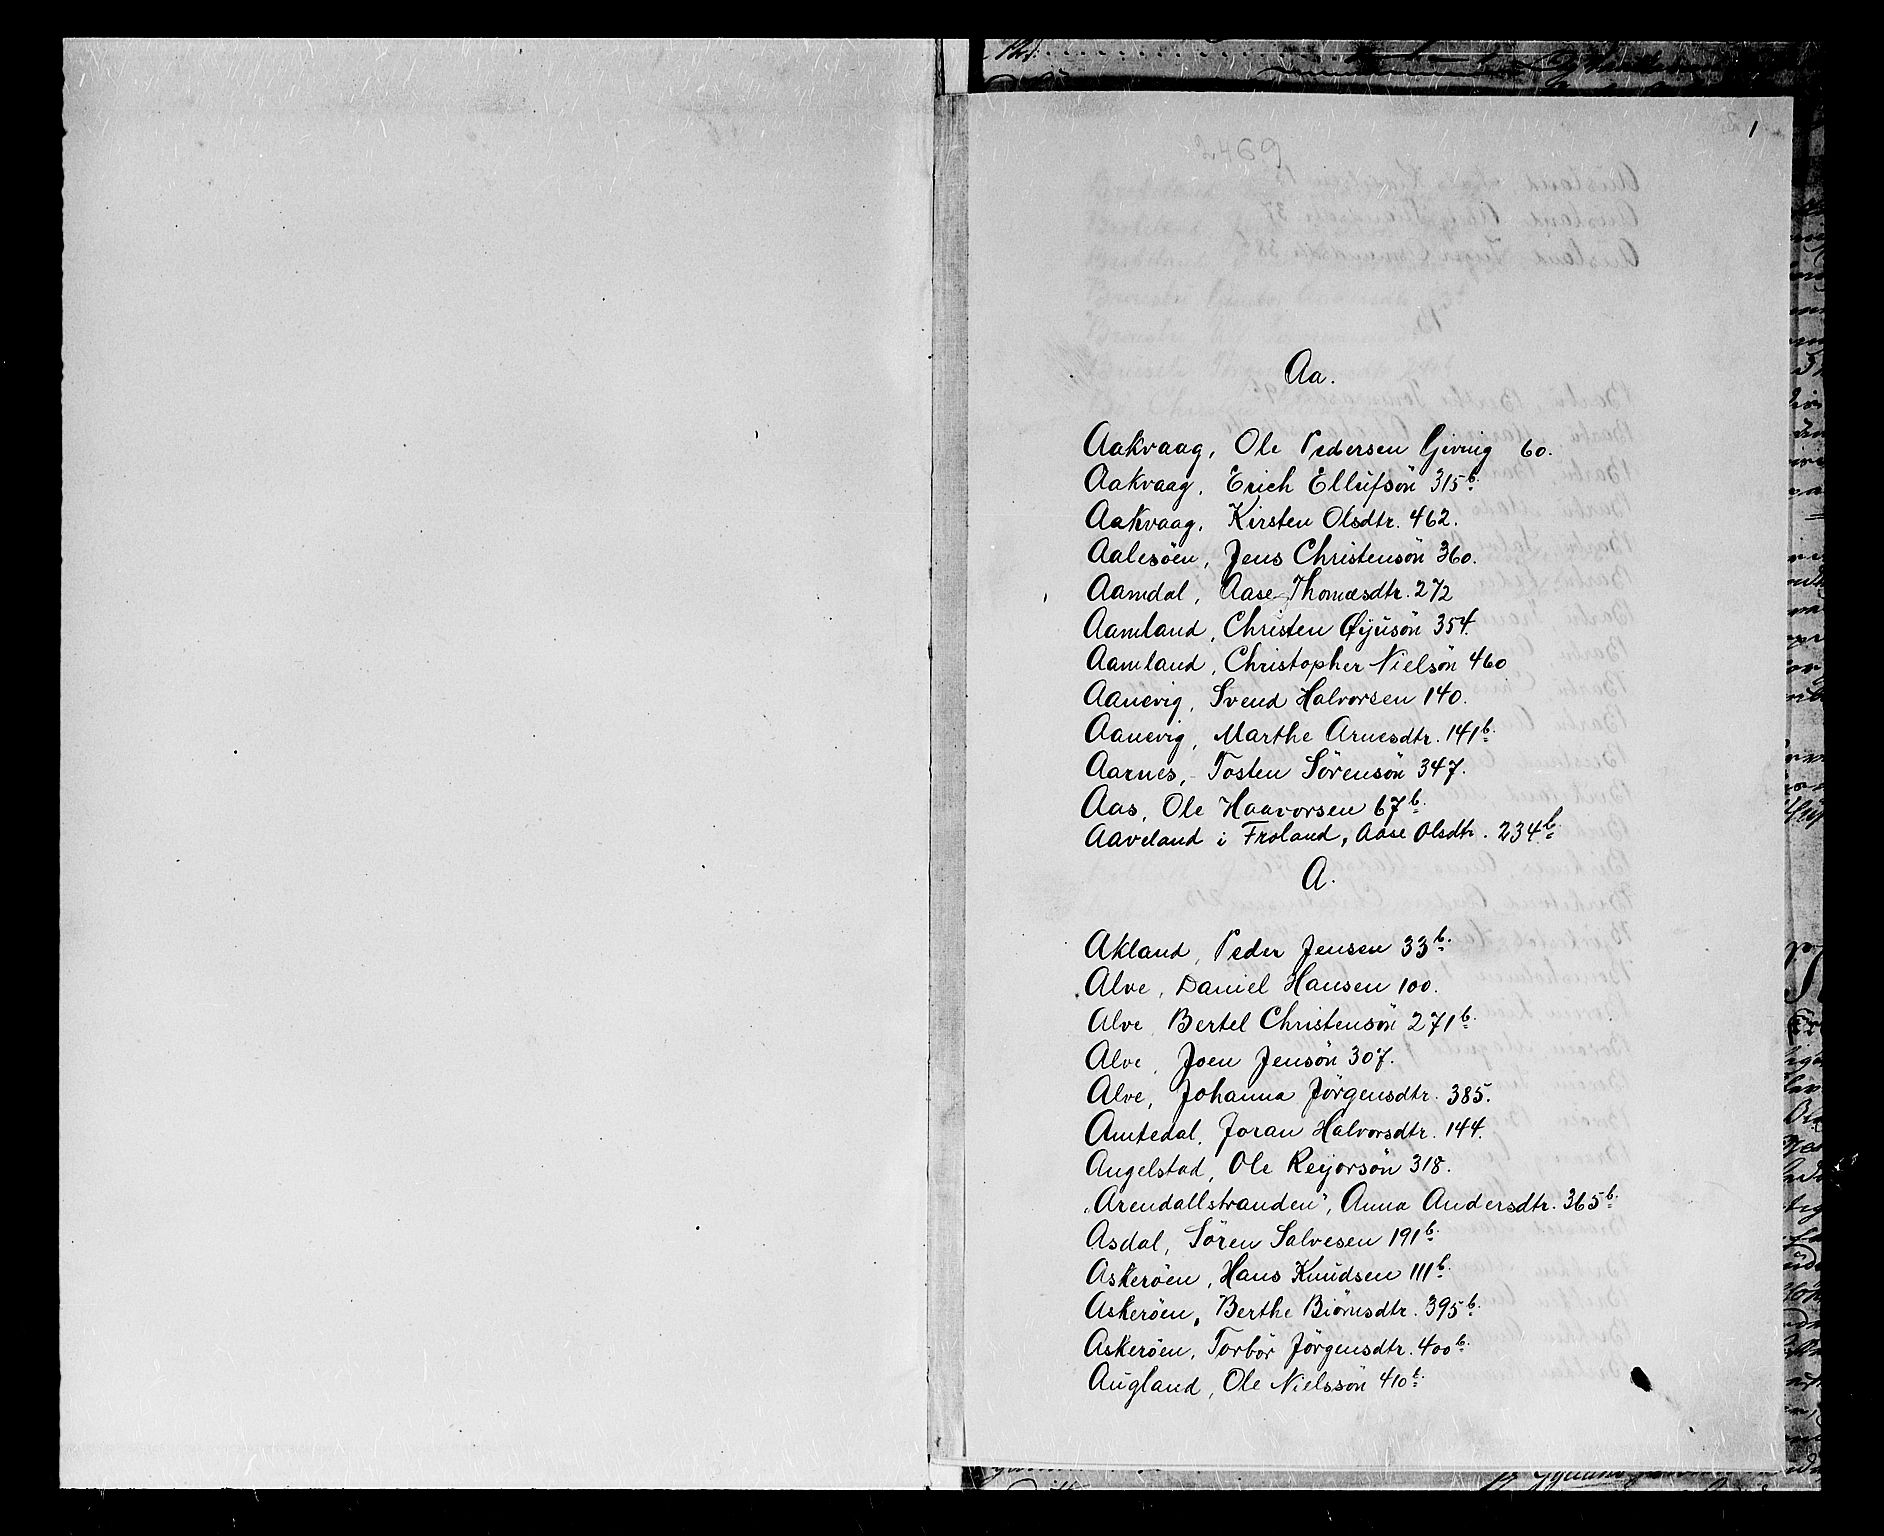 1
2469
Aa.
Aakvaag, Ole Pedersen Gjeving 60.
Aakvaag, Erich Ellufsön 315b.
Aakvaag, Kirsten Olsdtr. 462.
Aalesöen, Jens Christensön 360.
Aamdal, Aase Thomæsdtr. 272
Aamland, Christen Øyusön 354.
Aamland, Christopher Nielsön 460
Aanevig, Svend Halvorsen 140.
Aanevig, Marthe Arnesdtr. 141b.
Aarnes, Tosten Sörensön 347.
Aas, Ole Haavorsen 67b.
Aaveland i Froland, Aase Olsdtr. 234b.
A.
Akland, Peder Jensen 33b.
Alve, Daniel Hansen 100.
Alve, Bertel Christensön 271b.
Alve, Joen Jensön 307.
Alve, Johanna Jörgensdtr. 385.
Amtedal, Joran Halvorsdtr. 144.
Angelstad, Ole Reyorsön 318.
„Arendallstranden", Anna Andersdtr. 365b.
Asdal, Sören Salvesen 191b.
Askeröen, Hans Knudsen 111b.
Askeröen, Berthe Biörnsdtr. 395b.
Askeröen, Torbör Jörgensdtr. 400b.
Augland, Ole Nielssön 410b.